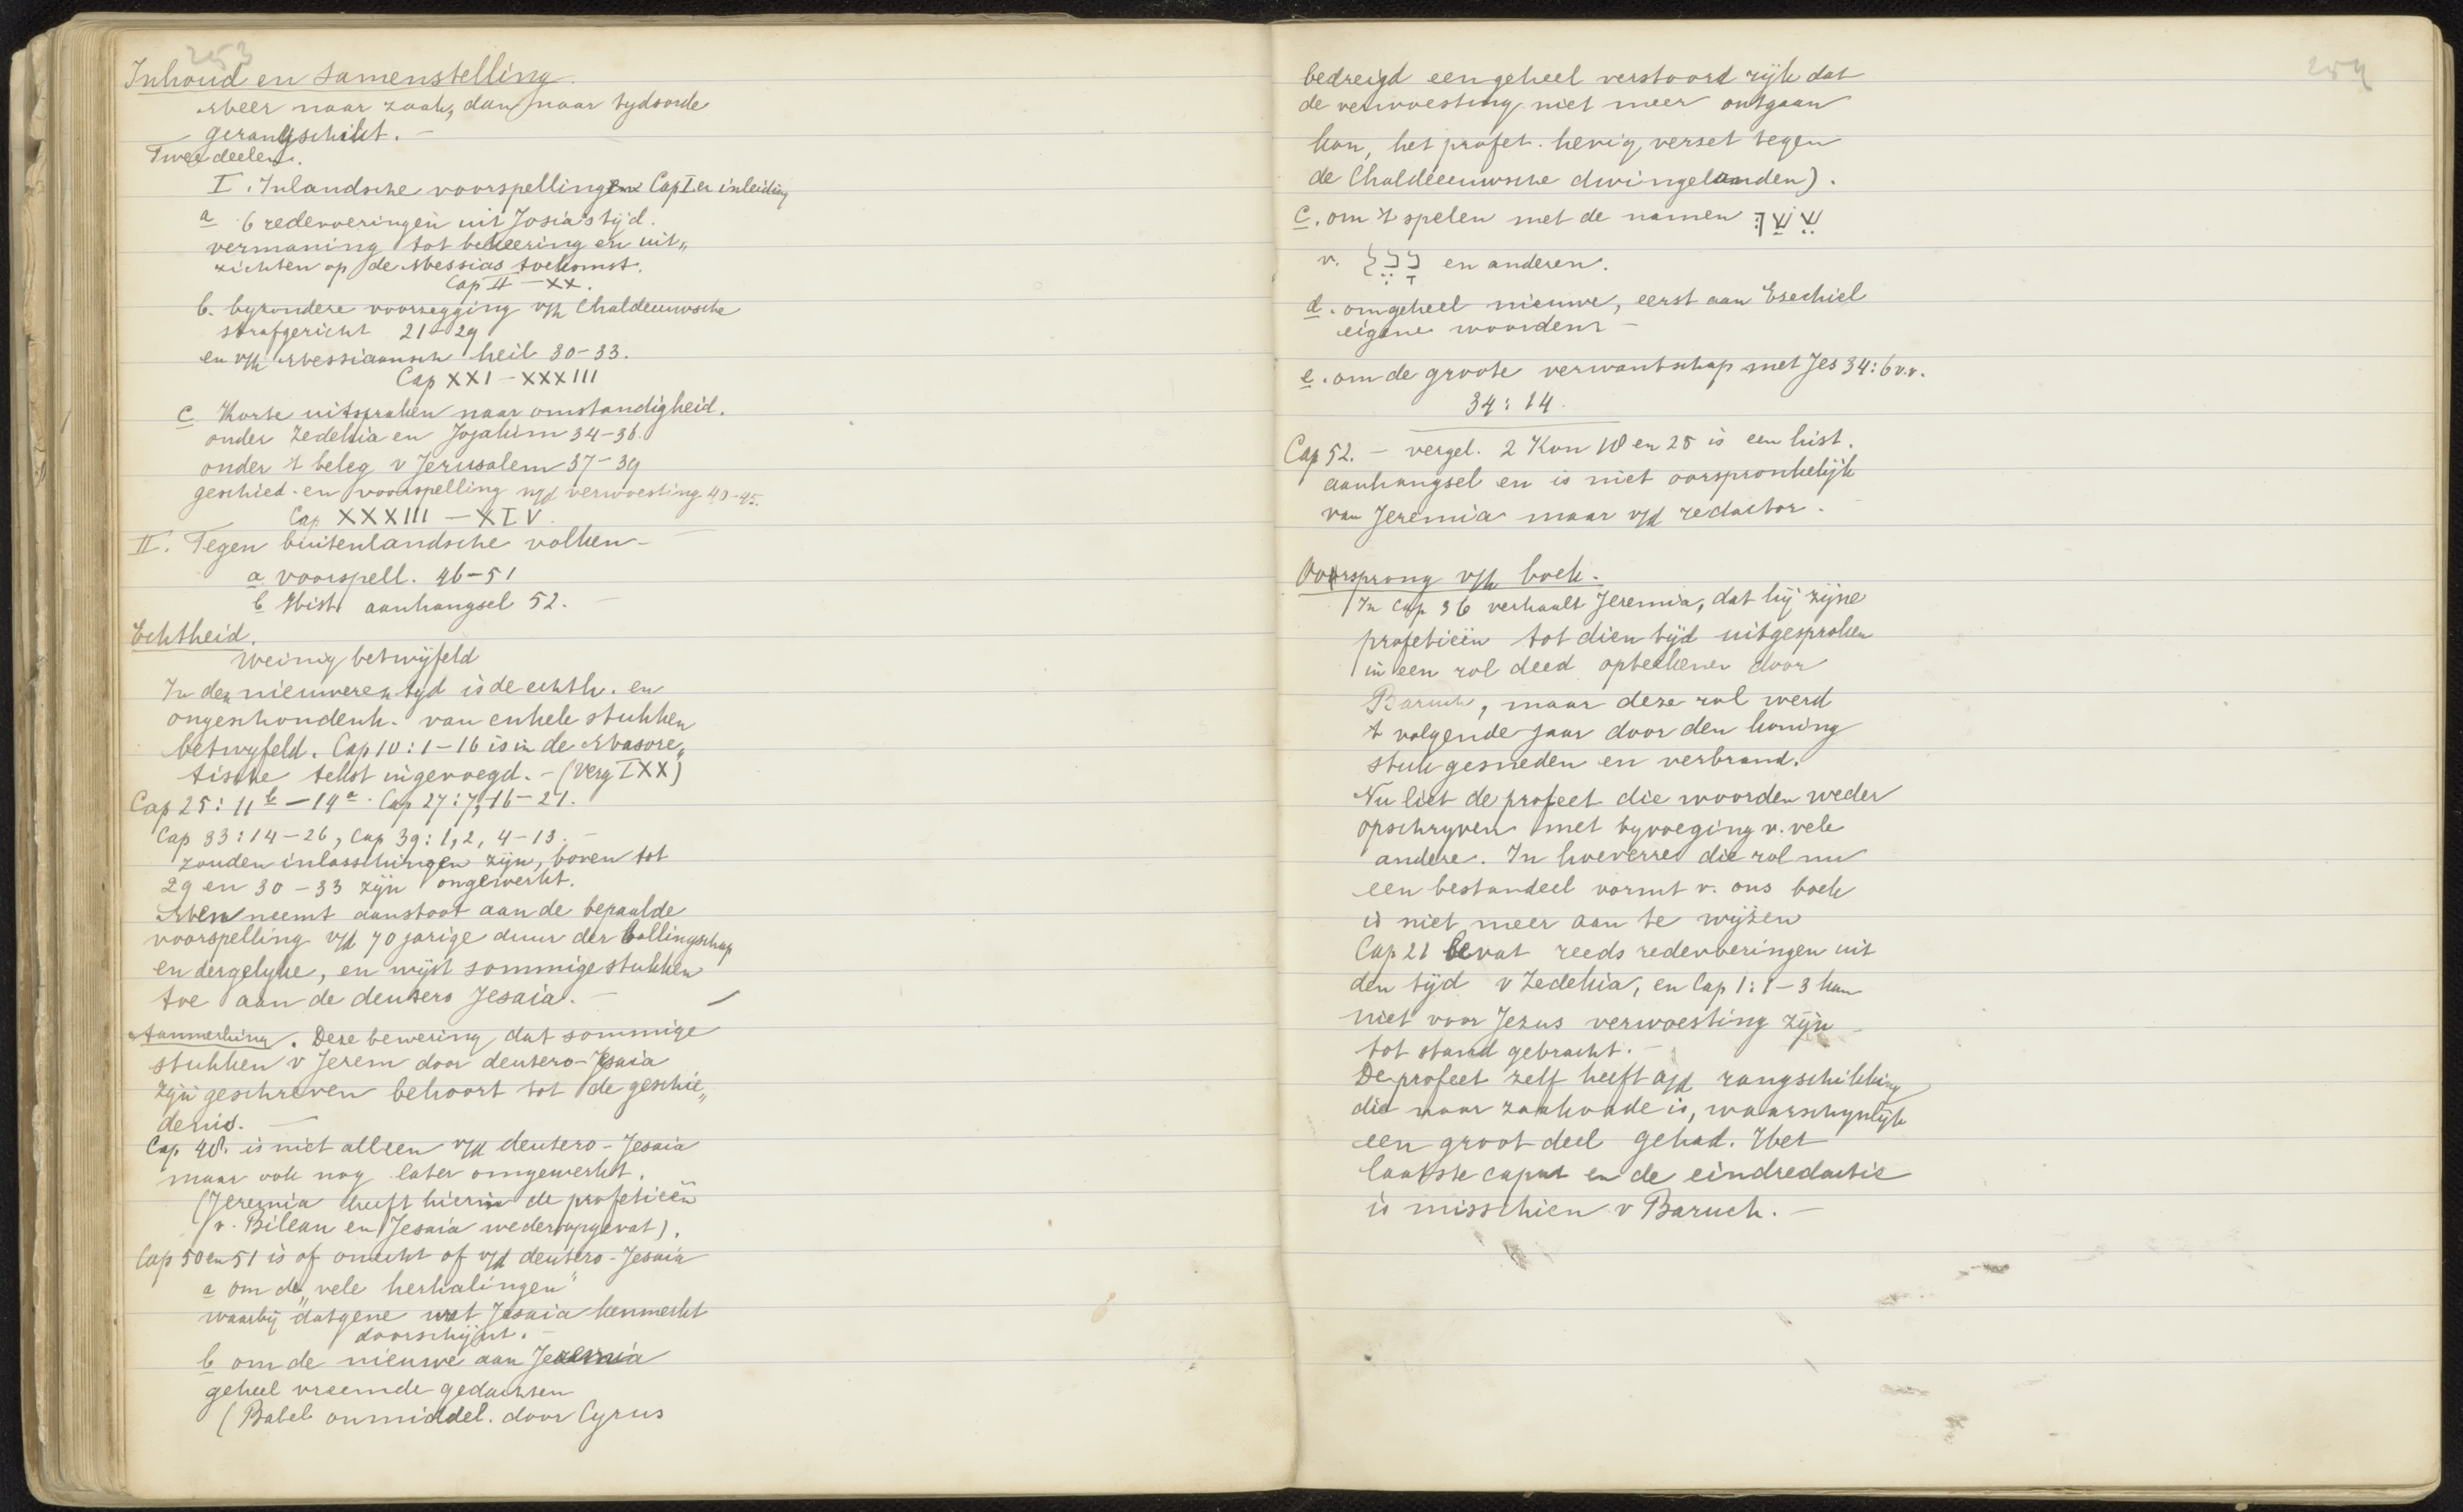 253
Inhoud en samenstelling.
Meer naar zaak, dan naar tydsorde
gerangschikt. —
Twee deelen.
I. Inlandsche voorspellingen Cap I er inleiding
a 6 redevoeringen uit Josia's tijd.
vermaning tot bekeering en uit„
zichten op de Messias toekomst.
Cap II — XX.
b. byzondere voorzegging v/h Chaldeeuwsche
strafgericht 21–29
en v/h Messiaansch heil 30–33.
Cap XXI – XXXIII
c Korte uitspraken naar omstandigheid.
onder Zedekia en Jojakim 34–36.
onder 't beleg v Jerusalem 37–39
geschied. en voorspelling n/d verwoesting 40–45.
Cap XXXIII — XIV.
II. Tegen buitenlandsche volken —
a voorspell. 46–51
b Hist aanhangsel 52. —
Echtheid.
Weinig betwijfeld
In den nieuweren tyd is de echth. en
ongeschondenh. van enkele stukken
betwyfeld. Cap 10:1–16 is in de Masore„
tische tekst ingevoegd. – (Verg IXX)
Cap 25: 11 b — 14 a. Cap 27:7, 16–21.
Cap 33:14–26, Cap 39:1,2, 4–13. —
zouden inlasschingen zijn, boven tot
29 en 30–33 zijn omgewerkt.
Men neemt aanstoot aan de bepaalde
voorspelling v/d 70 jarige duur der ballingschap
en dergelyke, en wijst sommige stukken
toe aan de deutero Jesaia. —
Aanmerking. Deze bewering dat sommige
stukken v Jerem door deutero-Jesaia
zijn geschreven behoort tot de geschie„
denis. —
Cap. 48. is niet alleen v/d deutero-Jesaia
maar ook nog later omgewerkt.
(Jeremia heeft hierin de profetieën
v. Bileam en Jesaia weder opgevat).
Cap 50 en 51 is of onecht of v/d deutero-Jesaia
a om de „vele herhalingen"
waarbij datgene wat Jesaia kenmerkt
doorschijnt. —
b om de nieuwe aan Jeremia
geheel vreemde gedachten
(Babel onmiddel. door Cyrus
254
bedreigd een geheel verstoord rijk dat
de verwoesting niet meer ontgaan
kan, het profet. hevig verzet tegen
de Chaldeeuwsche dwingelanden).
c. om 't spelen met de namen שֵׁשַׁךְ
v. en anderen.
d. om geheel nieuwe, eerst aan Ezechiel
eigene woorden —
e. om de groote verwantschap met Jes 34:6 v.v.
34:14.
Cap 52. — vergel. 2 Kon 18 en 25 is een hist.
aanhangsel en is niet oorspronkelijk
van Jeremia maar v/d redactor.
Oorsprong v/h boek.
In Cap 36 verhaalt Jeremia, dat hij zijne
profetieën tot dien tijd uitgesproken
in een rol deed opteekenen door
Baruch, maar deze rol werd
't volgende jaar door den koning
stuk gesneden en verbrand.
Nu liet de profeet die woorden weder
opschryven met byvoeging v. vele
andere. In hoeverre die rol nu
een bestandeel vormt v. ons boek
is niet meer aan te wijzen
Cap 21 bevat reeds redevoeringen uit
den tijd v Zedekia, en Cap 1:1–3 kan
niet voor Jezus verwoesting zijn
tot stand gebracht. —
De profeet zelf heeft a/d rangschikking
die naar zaakorde is, waarschynlijk
een groot deel gehad. Het
laatste caput en de eindredactie
is misschien v Baruch. —